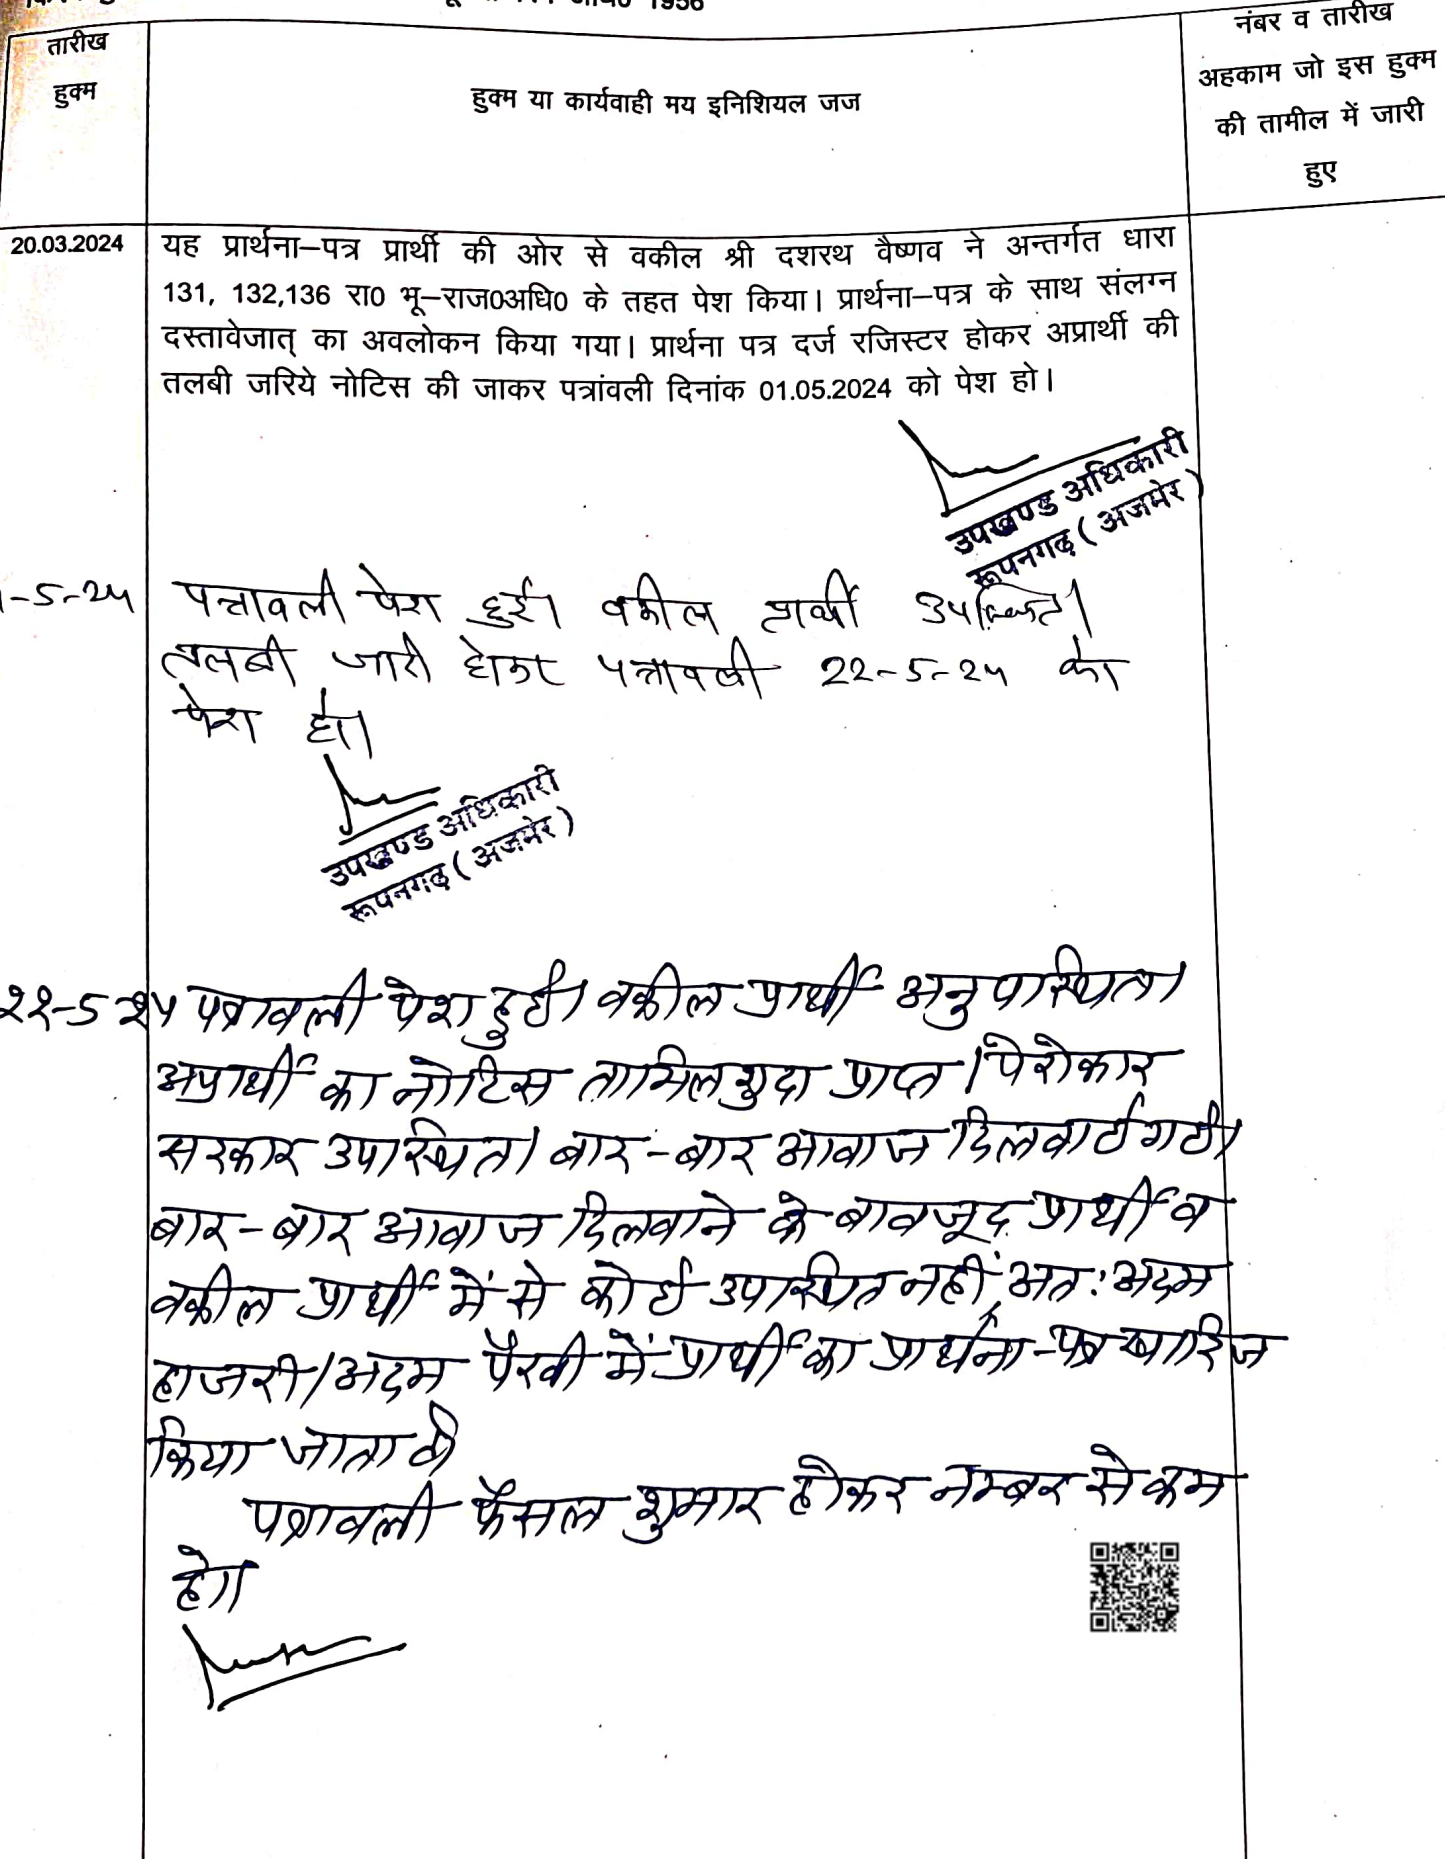 1956
तारीख
हुक्म
हुक्म या कार्यवाही मय इनिशियल जज
नंबर व तारीख
अहकाम जो इस हुक्म
की तामील में जारी
हुए
20.03.2024
यह प्रार्थना–पत्र प्रार्थी की ओर से वकील श्री दशरथ वैष्णव ने अन्तर्गत धारा
131, 132,136 रा0 भू–राज0अधि0 के तहत पेश किया। प्रार्थना–पत्र के साथ संलग्न
दस्तावेजात् का अवलोकन किया गया। प्रार्थना पत्र दर्ज रजिस्टर होकर अप्रार्थी की
तलबी जरिये नोटिस की जाकर पत्रांवली दिनांक 01.05.2024 को पेश हो।
उपखण्ड अधिकारी
रूपनगढ़ (अजमेर)
-5-24 पत्रावली पेश हुई। वकील प्रार्थी उपस्थित।
तलबी जारी होकर पत्रावली 22-5-24 को
पेश हो।
उपखण्ड अधिकारी
रूपनगढ़ (अजमेर)
22-5-24 पत्रावली पेश हुई। वकील प्रार्थी अनुपस्थित।
अप्रार्थी का नोटिस तामिलशुदा प्राप्त। पेरोकार
सरकार उपस्थित। बार-बार आवाज दिलवाई गई।
बार-बार आवाज दिलवाने के बावजूद प्रार्थी व
वकील प्रार्थी में से कोई उपस्थित नहीं, अतः अदम
हाजरी/अदम पैरवी में प्रार्थी का प्रार्थना-पत्र खारिज
किया जाता है।
पत्रावली फैसल शुमार होकर नम्बर से कम
हो।